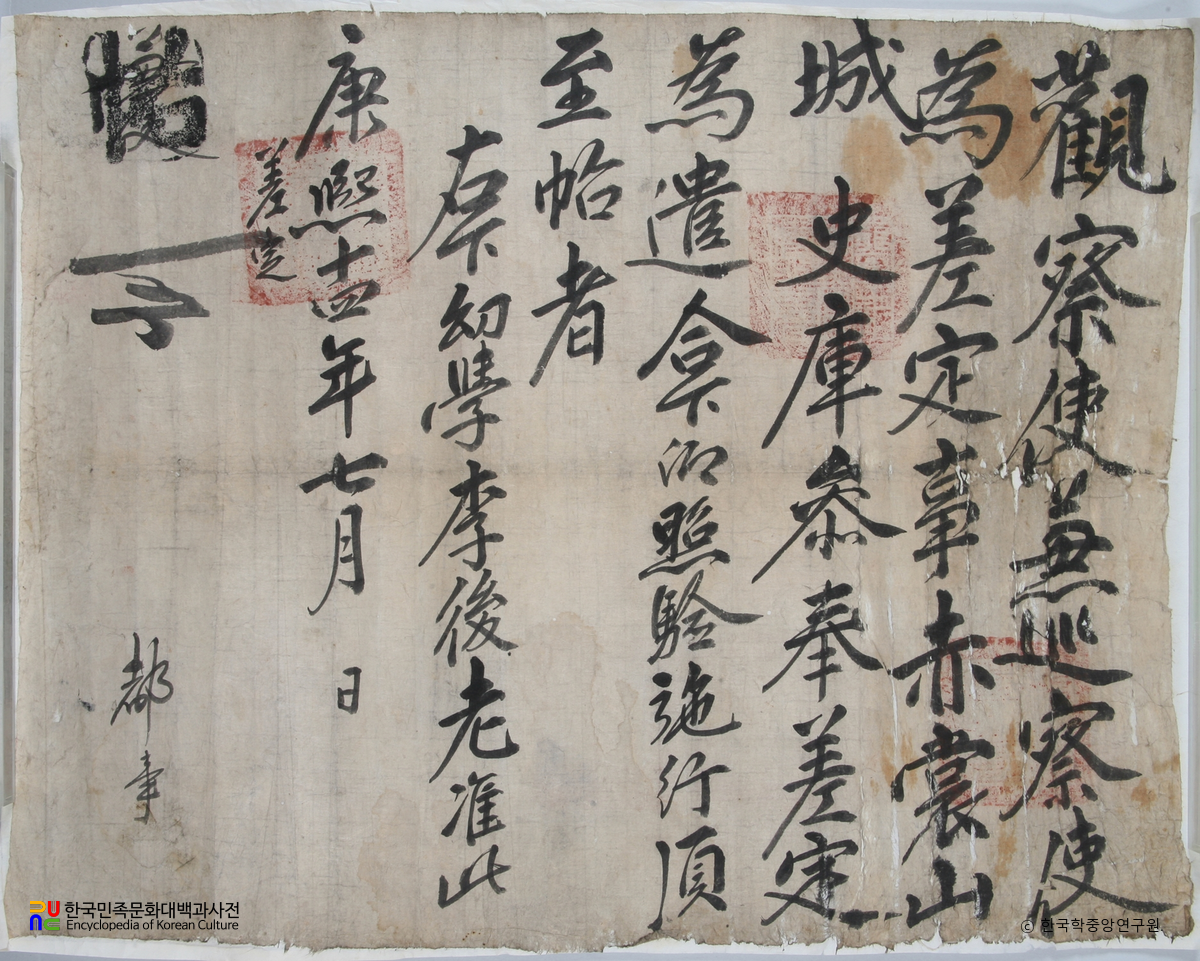 觀察使兼巡察使
為差定事赤裳山
城 史庫參奉差定
為遣合下仰照驗施行須
至帖者
右下幼學李後老准此
康熙十四年七月 日
差定
帖
都事
한국민족문화대백과사전
Encyclopedia of Korean Culture
© 한국학중앙연구원